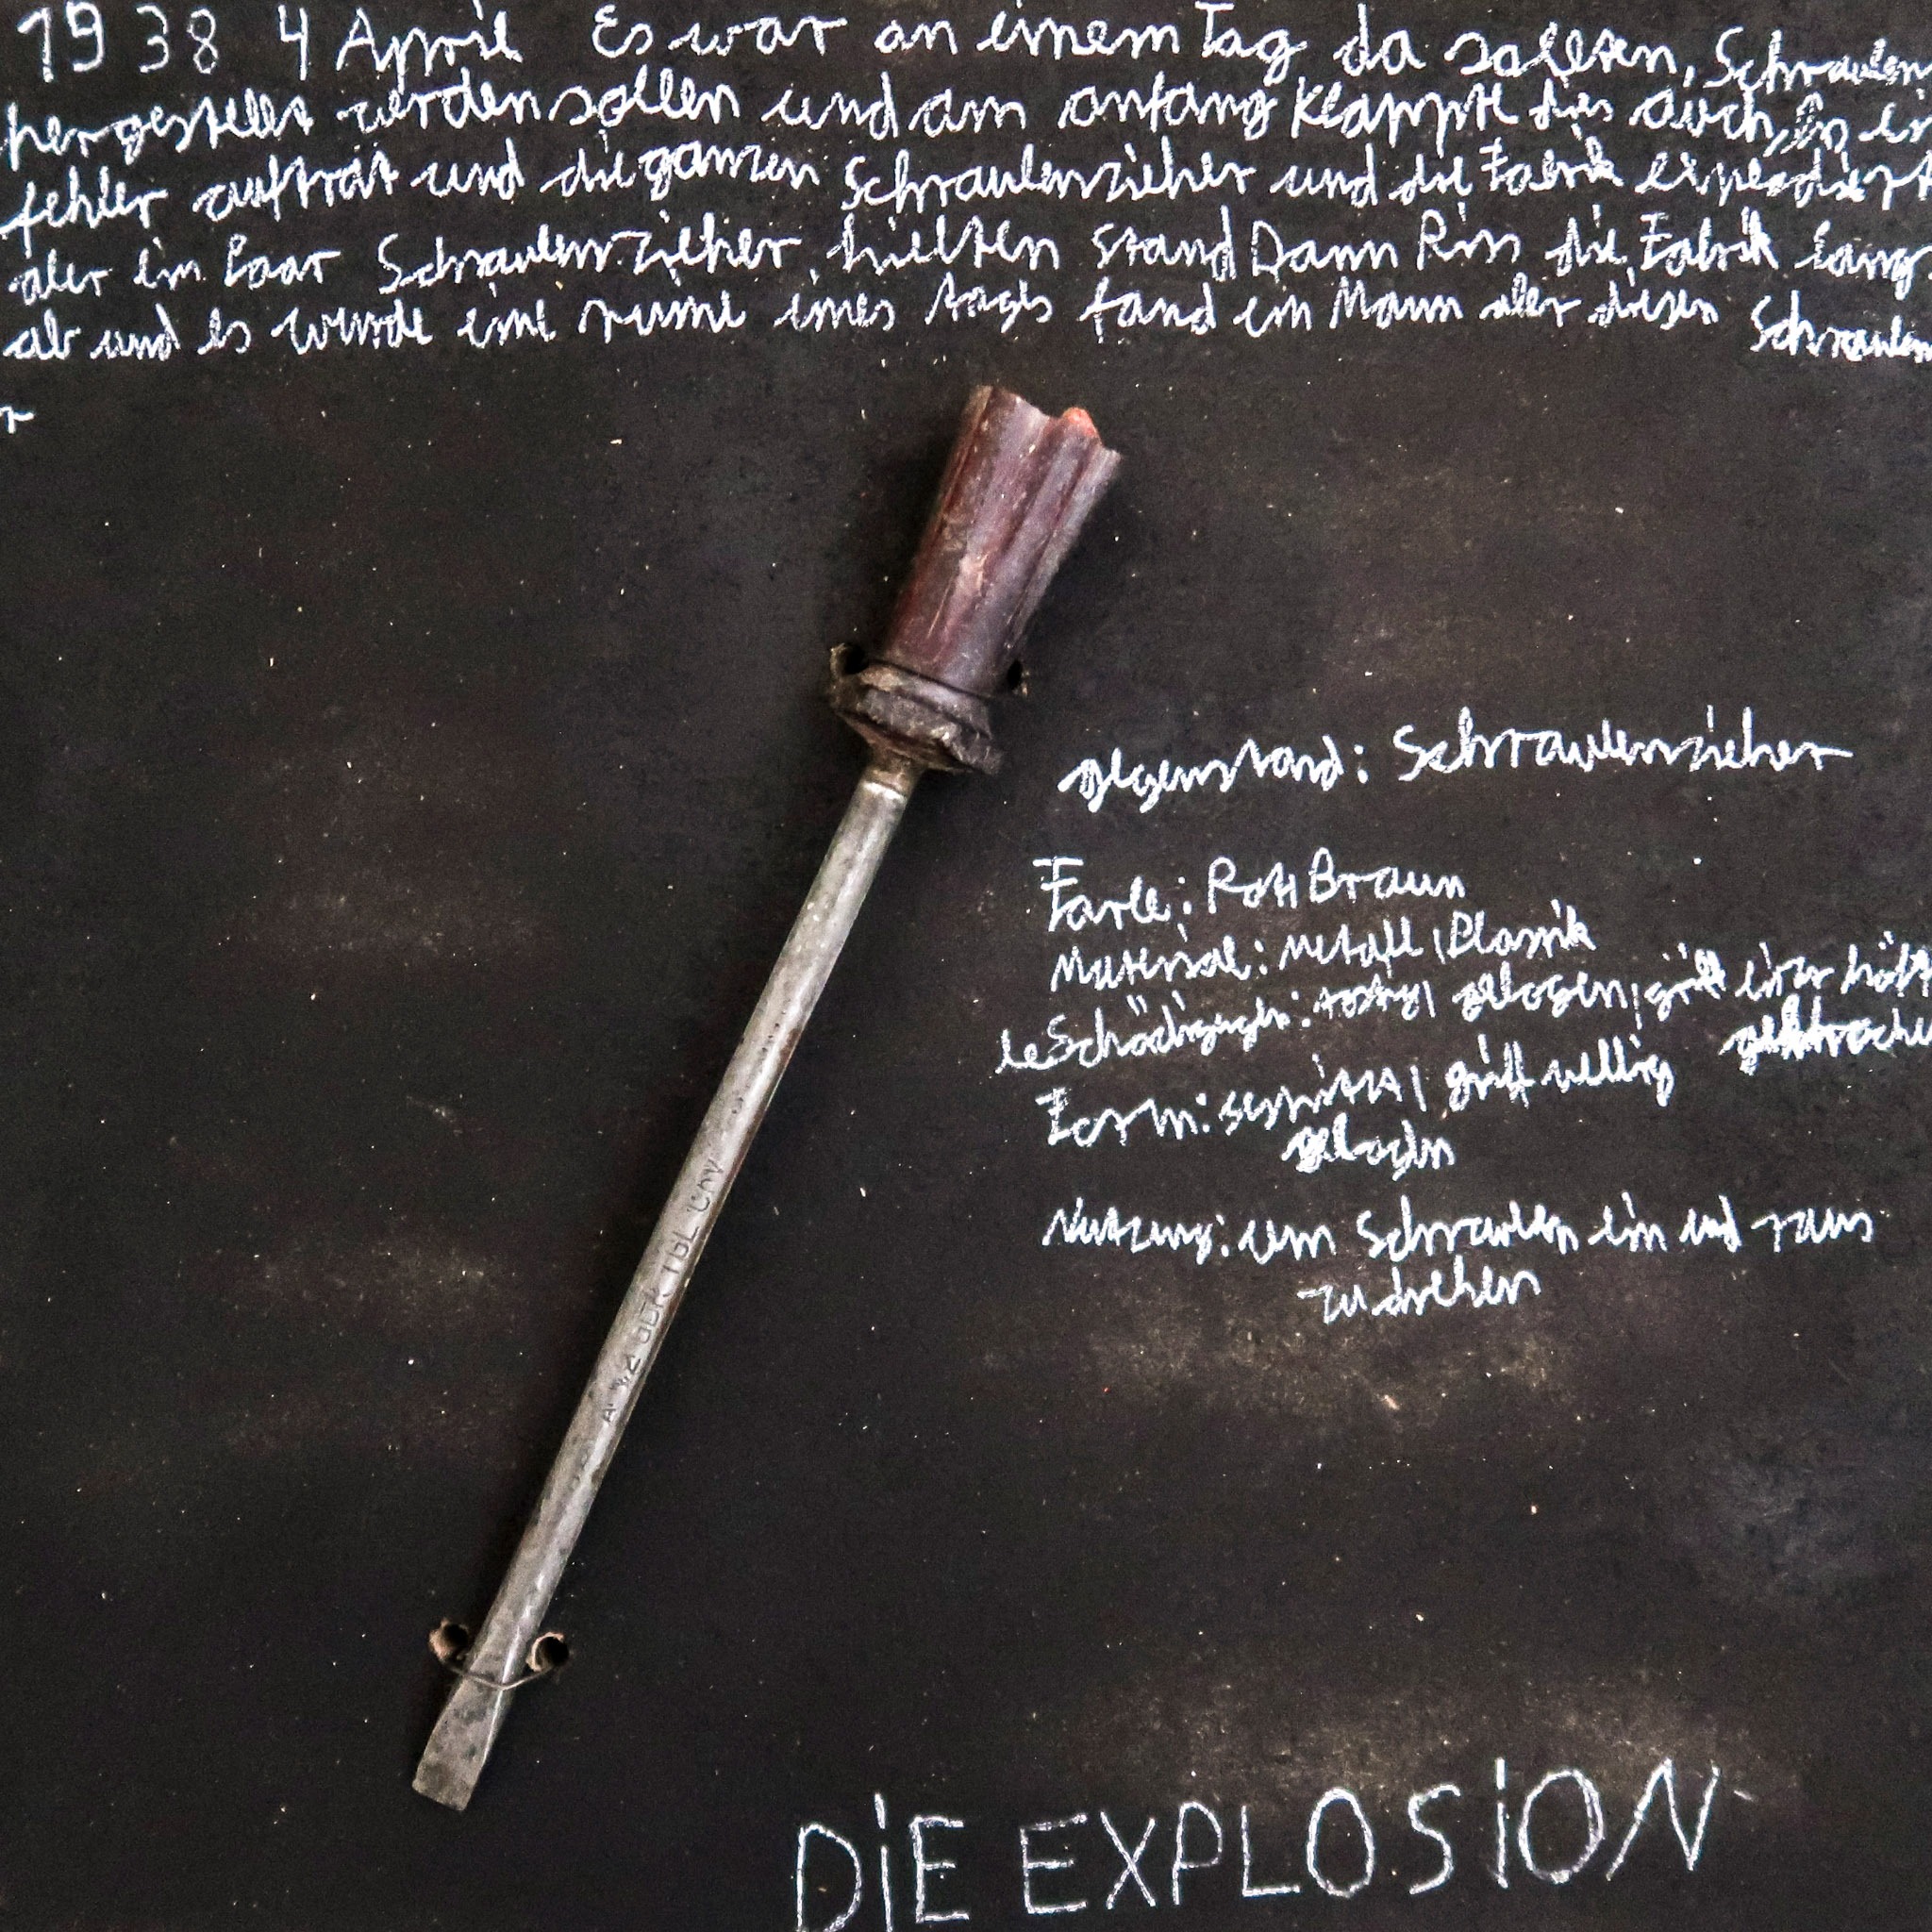 1938 4 April Es war an einem Tag da sollten, Schrauben
hergestellt werden sollen und am anfang klappte dies auch, bis ein
fehler auftrat und die ganzen Schraubenzieher und die Fabrik explodiert
aber ein Paar Schraubenzieher, hielten stand Dann Riss die Fabrik lang
ab und es wurde eine ruine eines tages fand ein Mann aber diesen Schrauben
r
gegenstand: Schraubenzieher
Farbe: Rot Braun
Material: Metall, Plastik
beSchädigugen: rostig, gebogen, griff in der hälft
gebroche
Form: griff wellig
gebogen
Nutzung: um Schrauben ein und raus
zu drehen
DiE EXPLOSiON